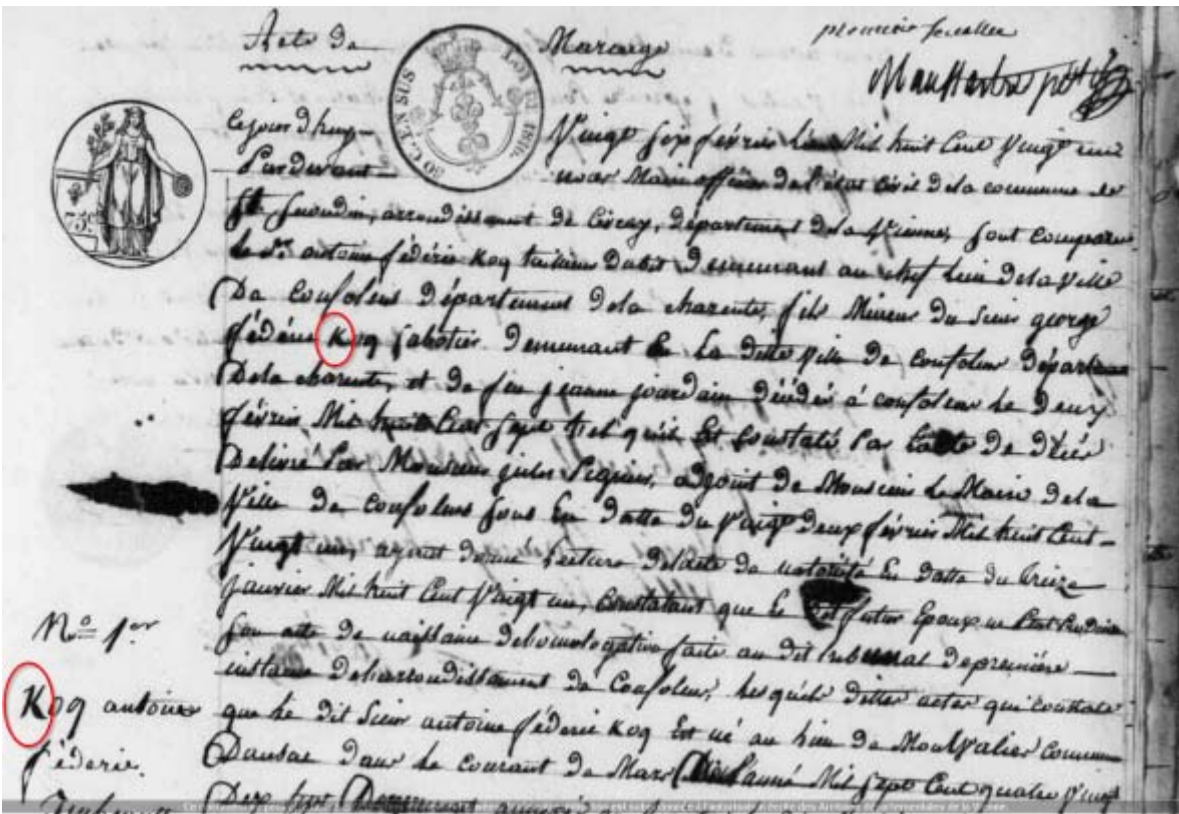 Acte de Mariage
premier feuillet
50 C. EN SUS
LOI DE 1816.
75c
Cejourdhuy Vingt six février Mil huit Cent Vingt un
Pardevant nous Maire officier de l'état Civil de la commune de
St Saoudin, arrondissement de Civray, département de la Vienne, sont comparu
le Sr antoine féderic Koq tailleur dabit Demeurant au chef lieu de la Ville
De Confolens Département de la charente, fils Mineur du Sieur george
féderic Koq Sabotier Demeurant en La ditte Ville de Confolens département
De la charente, et de feu jeanne jourdain décédée à Confolens le Deux
février Mil huit Cent Sept tel qu'il Est Constaté Par Lacte de décés
Délivré Par Monsieur gilles adjoint de Monsieur Le Maire de la
Ville de Confolens sous En Datte du Vingt deux février Mil huit Cent
Vingt un, ayant donné Lecture de lacte de notoriété En datte du treize
janvier Mil huit Cent Vingt un, Constatant que Le dit futur Epoux
son acte de naissance faite au dit tribunal de premiere
instance de larrondissement de Confolens, les quels dittes actes qui Constate
que le dit Sieur antoine féderic Koq Est né au lieu de MontValier Commune
Dansac dans le Courant de Mars Mil Sept Cent quatre Vingt
Dix Sept
No 1er
Koq antoine
féderic.